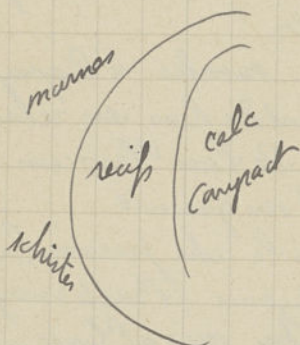 marnes
recifs
calc
compact
schistes